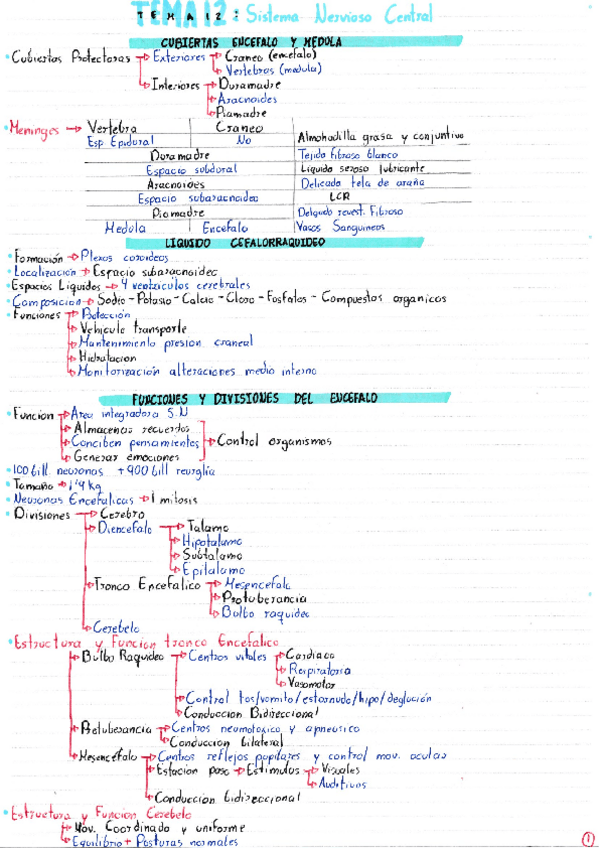 TEMA 12: Sistema Nervioso Central
CUBIERTAS ENCEFALO Y MEDULA
Cubiertas Protectoras → Exteriores → Craneo (encefalo)
→ Vertebras (medula)
→ Interiores → Duramadre
→ Aracnoides
→ Piamadre
Meninges → Vertebra Craneo
Esp Epidural No Almohadilla grasa y conjuntivo
Duramadre Tejido fibroso blanco
Espacio subdural Liquido seroso lubricante
Aracnoides Delicada tela de araña
Espacio subaracnoideo LCR
Piamadre Delgado revest. Fibroso
Medula Encefalo Vasos Sanguineos
LIQUIDO CEFALORRAQUIDEO
Formación → Plexos coroideos
Localización → Espacio subaracnoideo
Espacios Liquidos → 4 ventriculos cerebrales
Composicion → Sodio - Potasio - Calcio - Cloro - Fosfatos - Compuestos organicos
Funciones → Protección
→ Vehiculo transporte
→ Mantenimiento presion craneal
→ Hidratacion
→ Monitorización alteraciones medio interno
FUNCIONES Y DIVISIONES DEL ENCEFALO
Funcion → Area integradora S.N
→ Almacenar recuerdos
→ Conciben pensamientos → Control organismos
→ Generar emociones
100 bill. neuronas + 900 bill neuroglia
Tamaño → 1'4 kg
Neuronas Encefalicas → 1 mitosis
Divisiones → Cerebro
→ Diencefalo → Talamo
→ Hipotalamo
→ Subtalamo
→ Epitalamo
→ Tronco Encefalico → Mesencefalo
→ Protuberancia
→ Bulbo raquideo
→ Cerebelo
Estructura y Funcion tronco Encefalico
→ Bulbo Raquideo → Centros vitales → Cardiaco
→ Respiratorio
→ Vasomotor
→ Control tos/vomito/estornudo/hipo/deglución
→ Conduccion Bidireccional
→ Protuberancia → Centros neumotoxico y apneutico
→ Conduccion bilateral
→ Mesencefalo → Centros reflejos pupilares y control mov. ocular
→ Estacion paso → Estimulos → Visuales
→ Auditivos
→ Conduccion bidireccional
Estructura y Funcion Cerebelo
→ Mov. Coordinado y uniforme
→ Equilibrio + Posturas normales
1